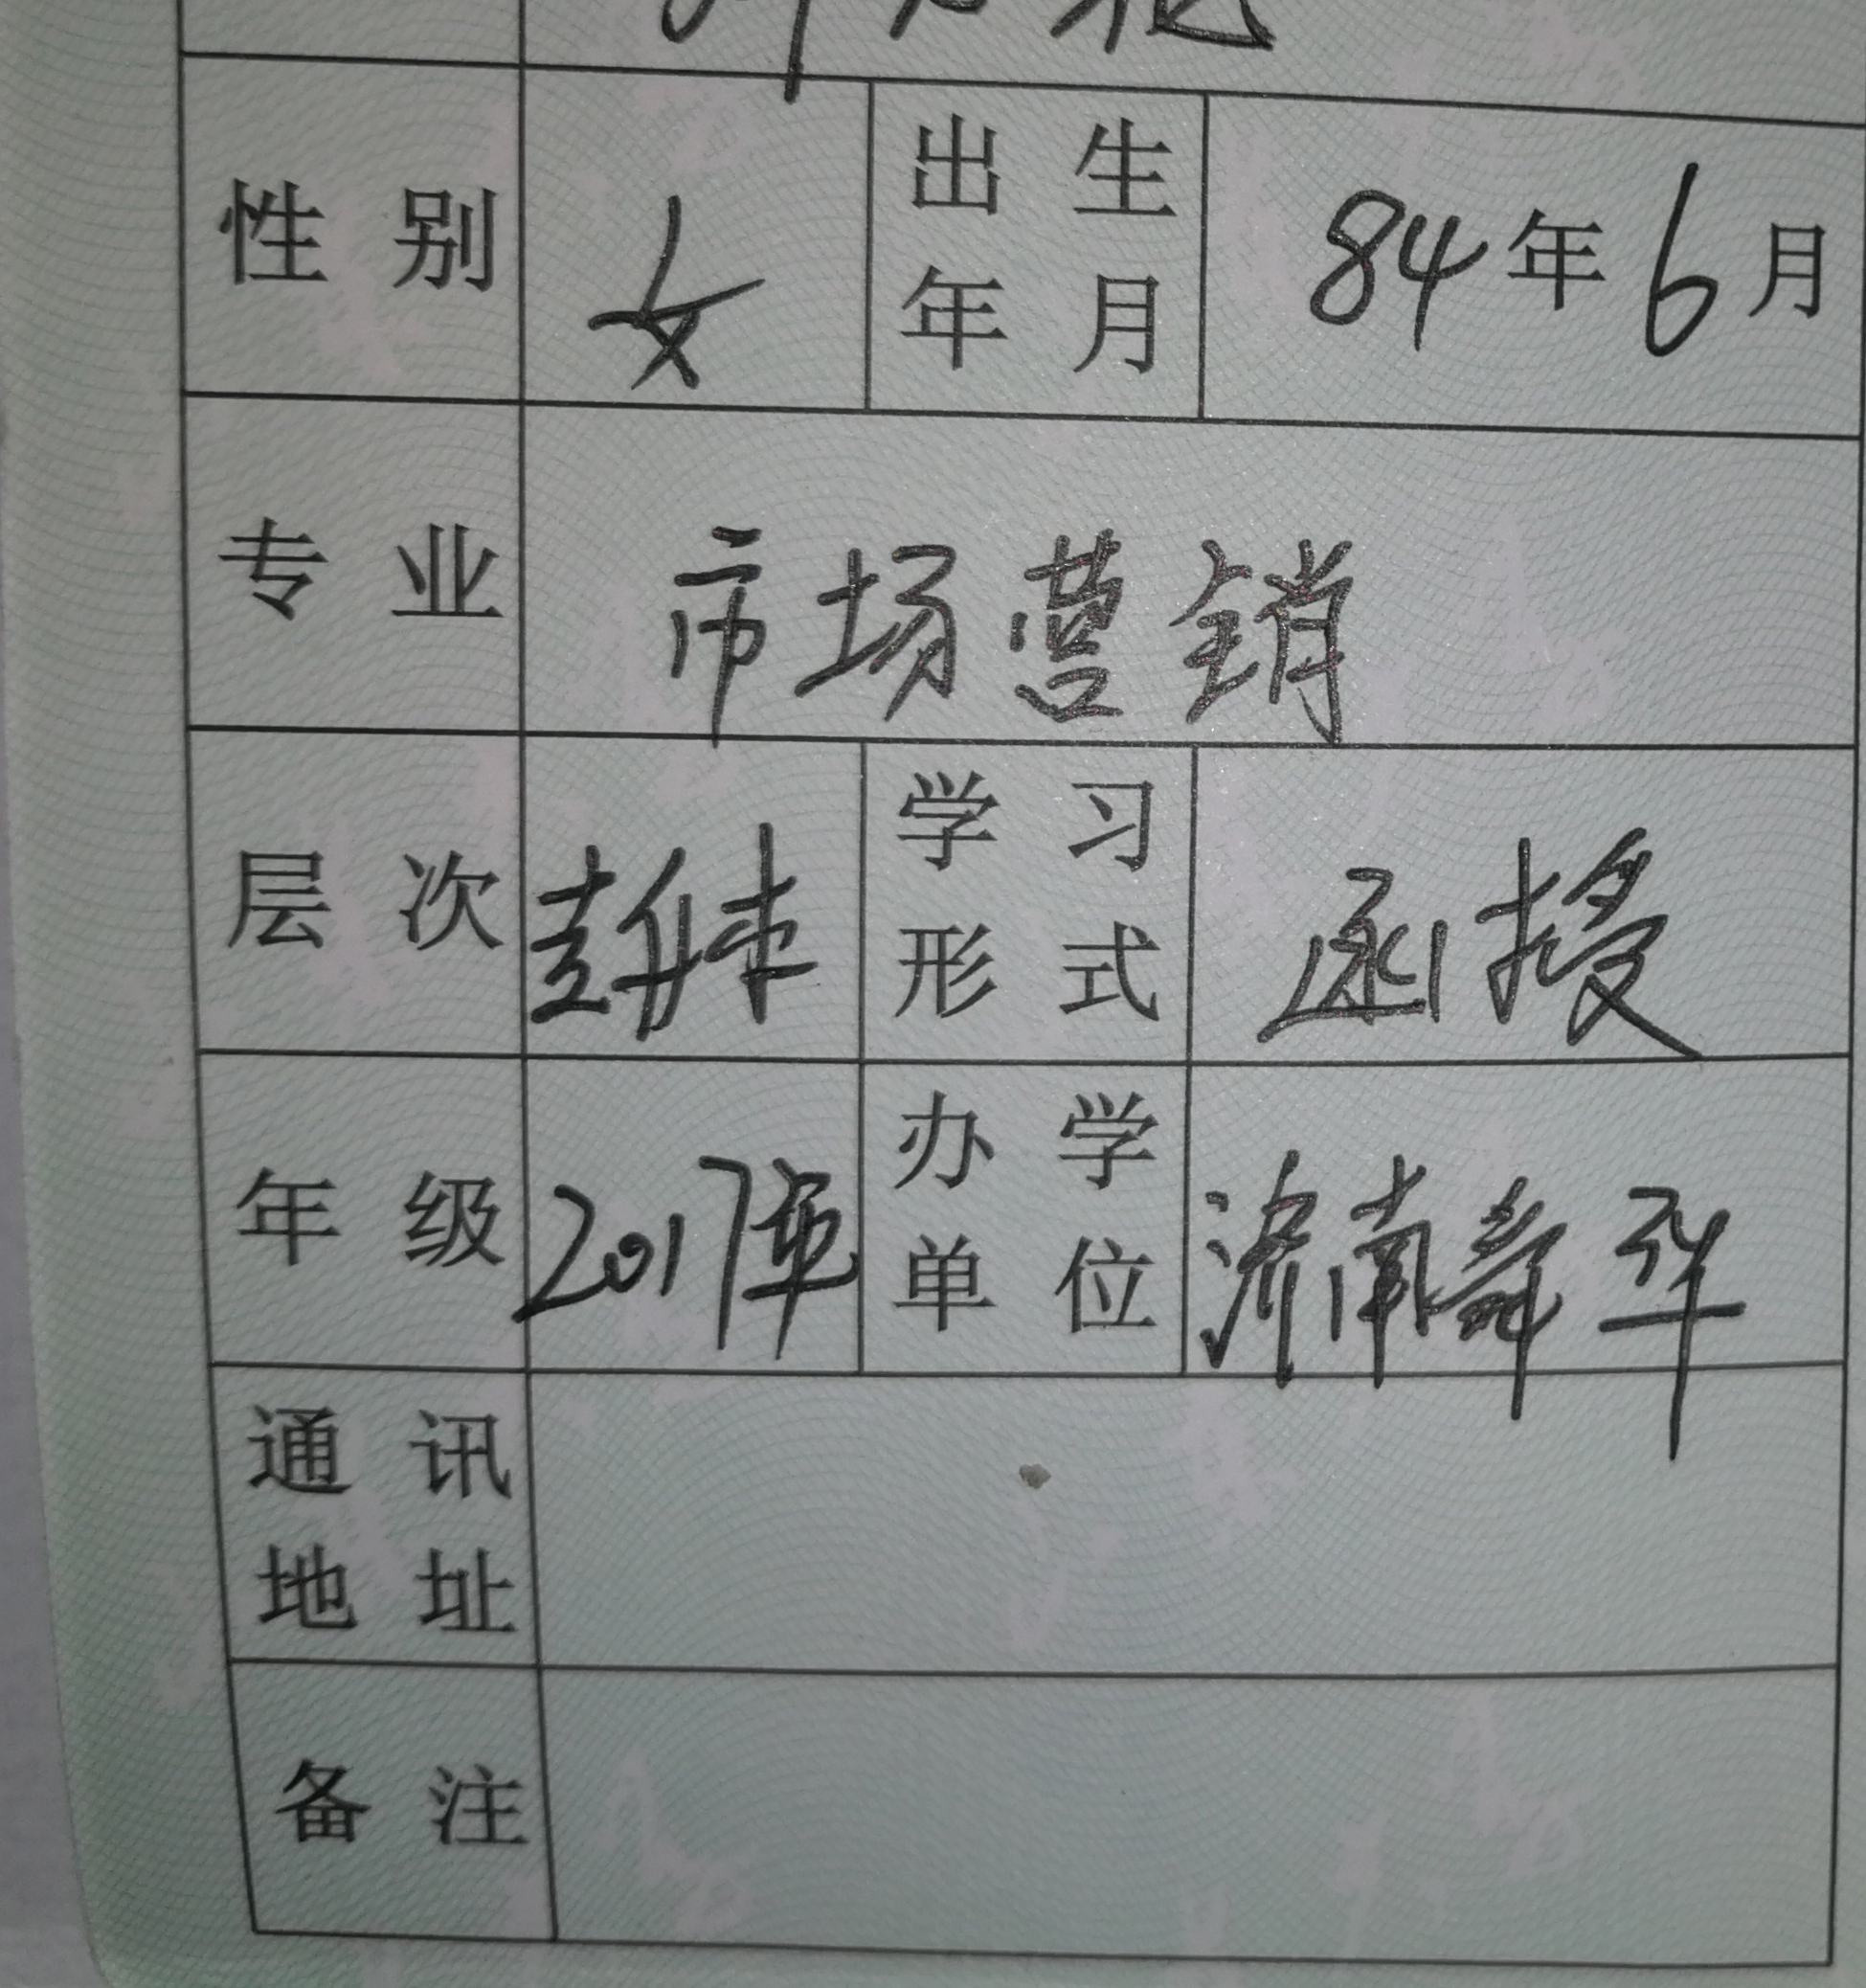 性 别 女 出 生 年 月 84年6月
专 业 市场营销
层 次 专升本 学 习 形 式 函授
年 级 2017年 办 学 单 位 济南舜华
通 讯 地 址
备 注